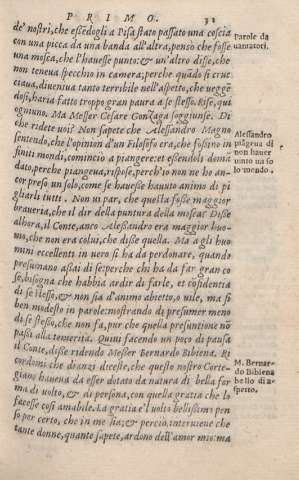 PRIMO. 32
de' nostri, che essēdogli a Pisa stato passato una coscia
con una picca da una banda all'altra, pensò che fosse
una mosca, che l'havesse punto: & un'altro disse, che
non teneva specchio in camera; perche quādo si cruc
ciava, diventua tanto terribile nell'aspetto, che veggē
dosi, haria fatto troppo gran paura a se stesso. Rise, qui
ogniuno. Ma Messer Cesare Gonzaga soggiunse. Di
che ridete voi? Non sapete che Alessandro Magno
sentendo, che l'opinion d'un Filosofo era, che fussino in
finiti mondi, cominciò a piangere: et essendoli deman
dato, perche piangeva, rispose, perch'io non ne ho an
cor preso un solo, come se havesse havuto animo di pi
gliarli tutti. Non vi par, che questa fosse maggior
braveria, che il dir della puntura della mosca? Disse
alhora, il Conte, anco Alessandro era maggior huo-
mo, che non era colui, che disse quella. Ma a gli huo
mini eccellenti in vero si ha da perdonare, quando
presumano assai di se: perche chi ha da far gran co
se, bisogna che habbia ardir di farle, et cōfidentia
di se stesso, & non sia d'animo abietto, o vile, ma si
ben modesto in parole: mostrando di presumer meno
di se stesso, che non fa, pur che quella presuntione nō
passi alla temerità. Quivi facendo un poco di pausa
il Conte, disse ridendo Messer Bernardo Bibiena. Ri
cordomi che dianzi diceste, che questo nostro Corte-
giano haveva da esser dotato da natura di bella for
ma di volto, & di persona, con quella gratia che lo
facesse così amabile. La gratia e'l volto bellissimo pen
so per certo, che in me sia; & perciò, interviene che
tante donne, quante sapete, ardono dell'amor mio: ma
Parole da
vantatori.
Alessandro
piāgeva di
non haver
vinto un so
lo mondo.
M. Bernar-
do Bibiena
bello di a-
spetto.